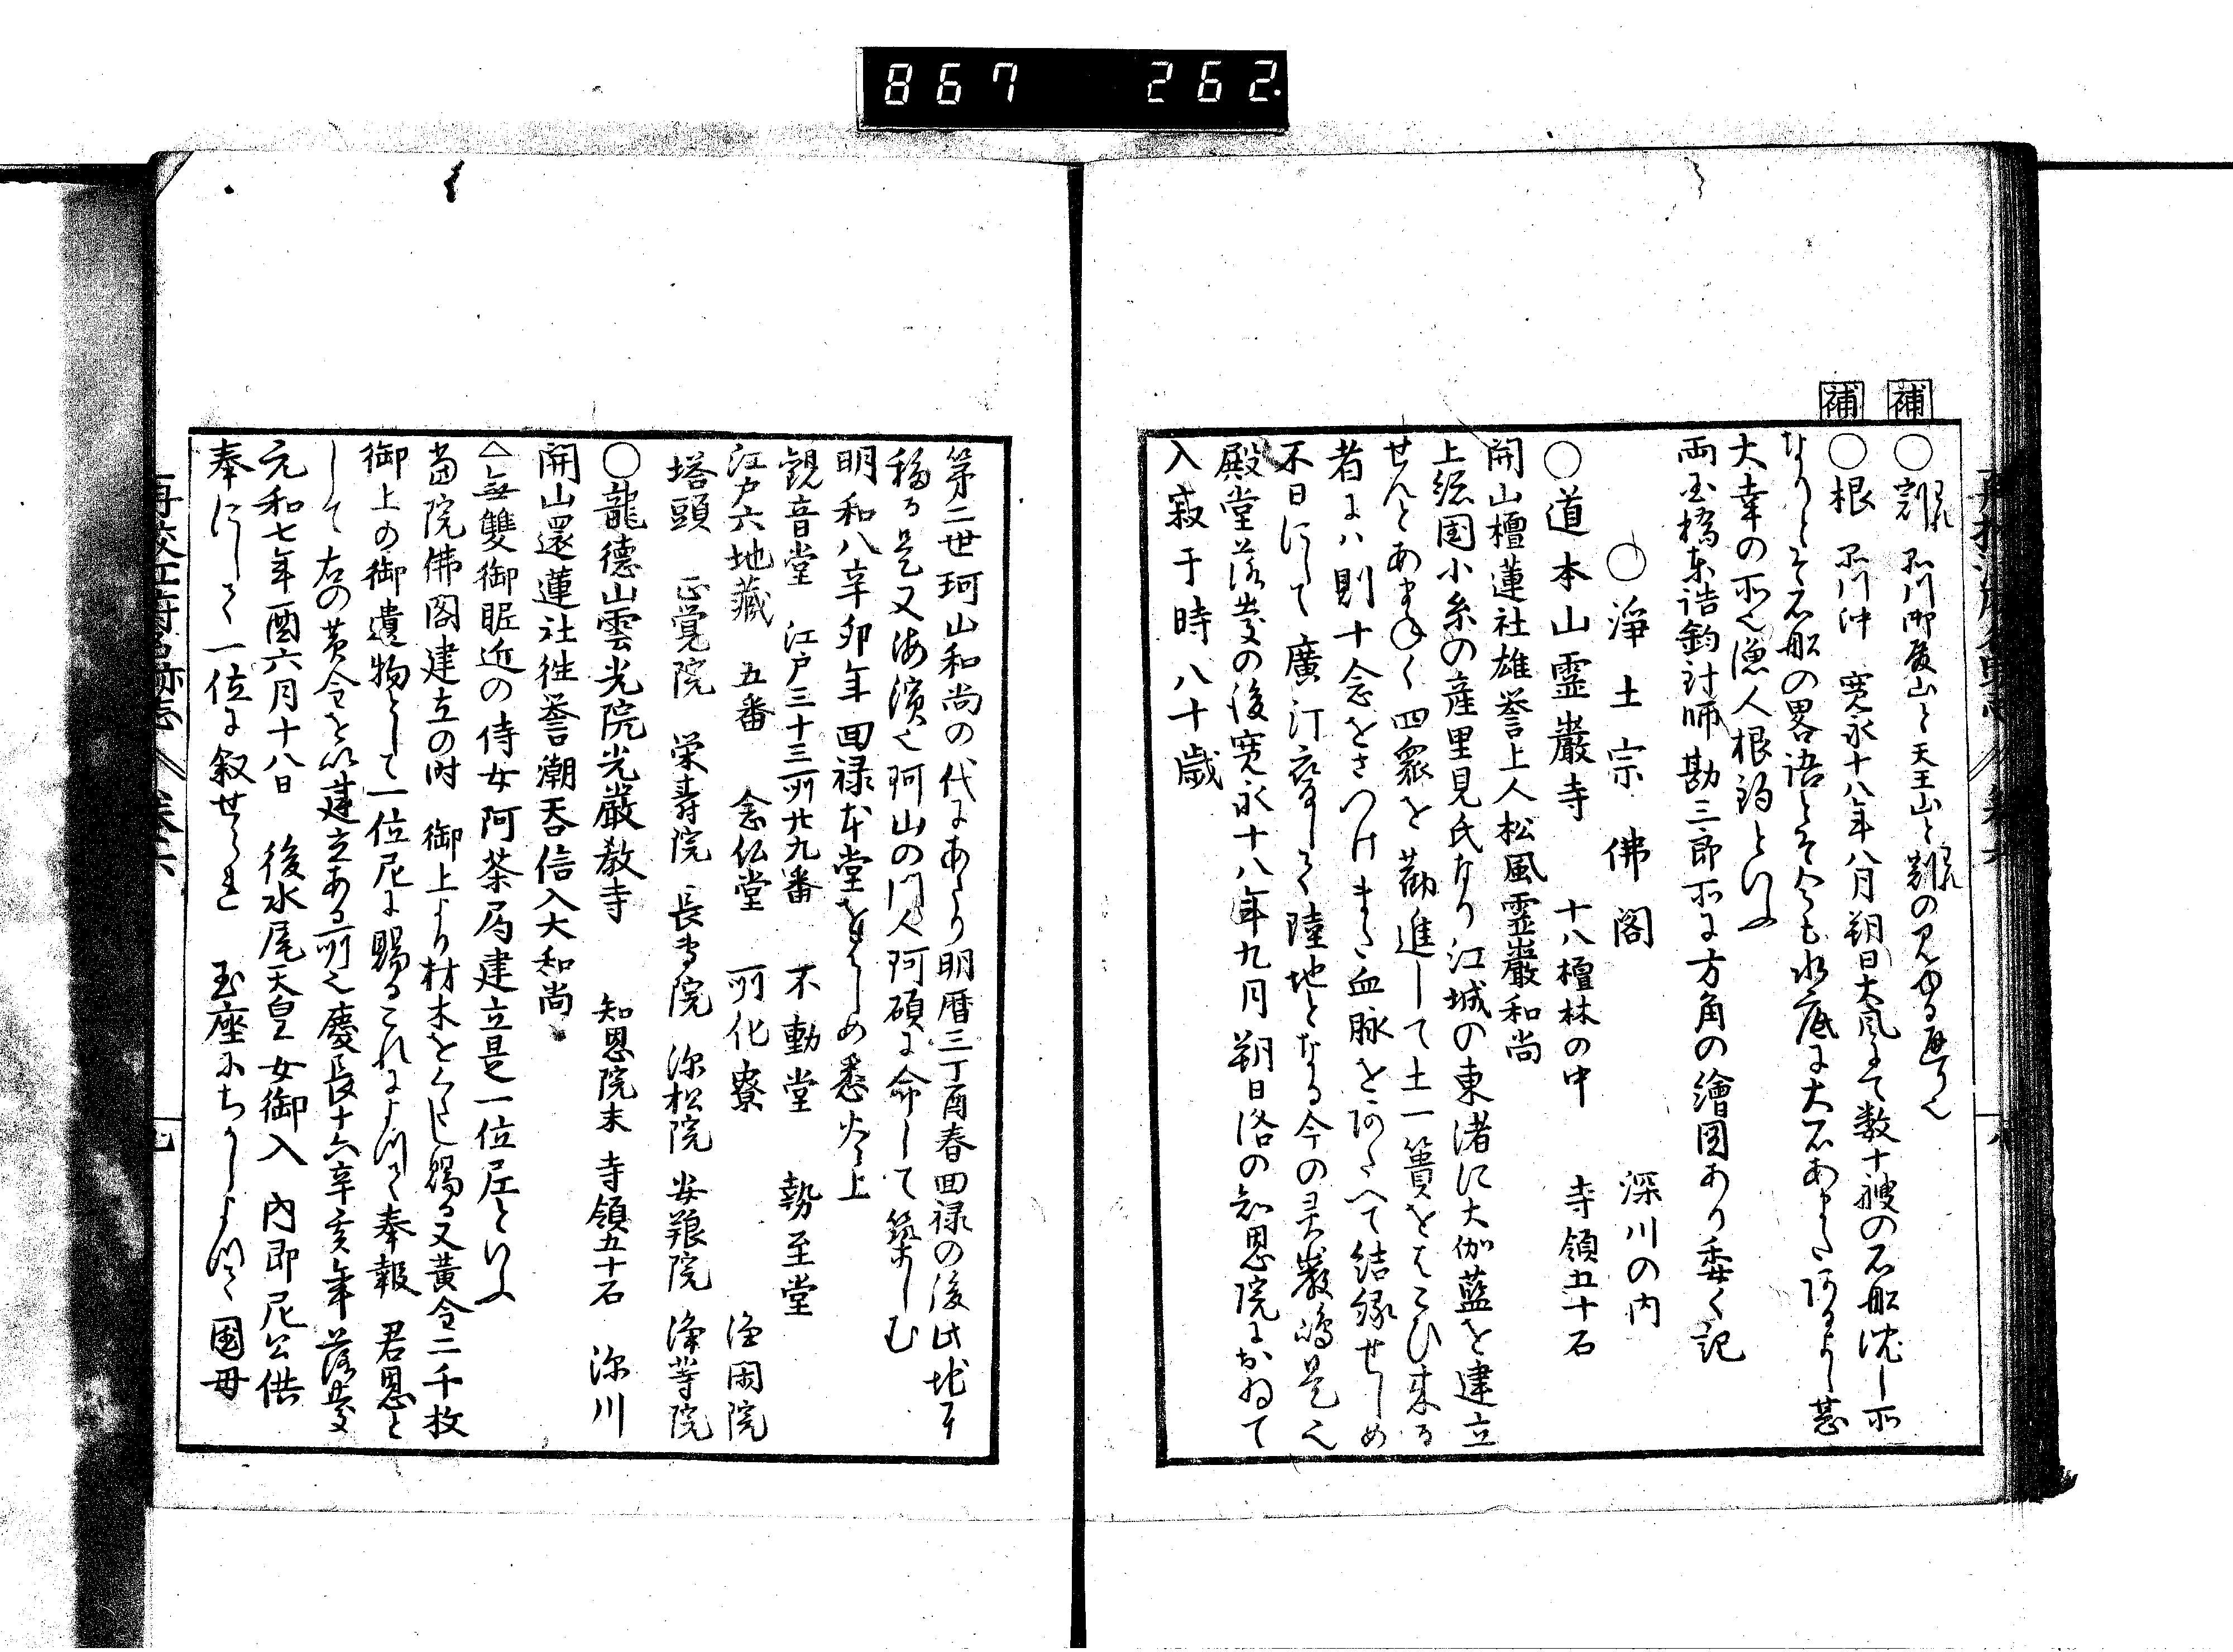 867 262
補
○割 品川御殿山と天王山と割の見ゆる通り也
補
○根 品川沖 寛永十八年八月朔日大風にて数十艘の石船沈し所
なりとそ石船の畧語とそ今も水底に大石あまた有るよし甚
大幸の所也漁人根釣といふ
両玉橋東詰釣針師勘三郎所に方角の繪図あり委く記
○淨土宗 佛閣 深川の内
○道本山霊巌寺 十八檀林の中 寺領五十石
開山檀蓮社雄誉上人松風霊巌和尚
上総国小糸の産里見氏なり江城の東渚に大伽藍を建立
せんとあまねく四衆を勸進して土一簣をもこひ来る
者には則十念をさつけまた血脉をあたへて結縁せしめ
不日にして廣汀変して陸地となる今の灵巌嶋是也
殿堂落慶の後寛永十八年九月朔日洛の知恩院におゐて
入寂于時八十歳
第二世珂山和尚の代にあたり明暦三丁酉春回禄の後此地に
移る是又海濱也珂山の門人珂碩に命して築しむ
明和八辛卯年回禄本堂をはしめ悉炎上
觀音堂 江戸三十三所廿九番 不動堂 勢至堂
江戸六地藏 五番 念仏堂 所化寮
塔頭 正覚院 栄寿院 長専院 深松院 安粮院 浄等院
○龍德山雲光院光巌教寺 知恩院末 寺領五十石 深川
開山還蓮社徃誉潮呑信入大和尚
△無雙御眤近の侍女阿茶局建立是一位尼といふ
當院佛閣建立の時 御上より材木をくたし賜る又黄金二千枚
御上の御遺物として一位尼に賜るこれによつて奉報 君恩と
して右の黄金を以建立ある所也慶長十六辛亥年落慶
元和七年酉六月十八日 後水尾天皇女御入 内即尼公供
奉にして一位に叙せられ 玉座にちかしよつて 國母
再校江府名跡志 巻六